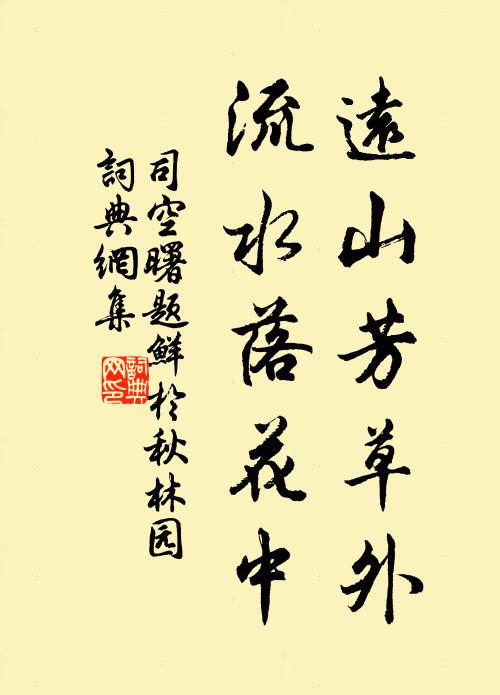 遠山芳草外
流水落花中
司空曙題鮮於秋林园
詞典網集
詞典網印